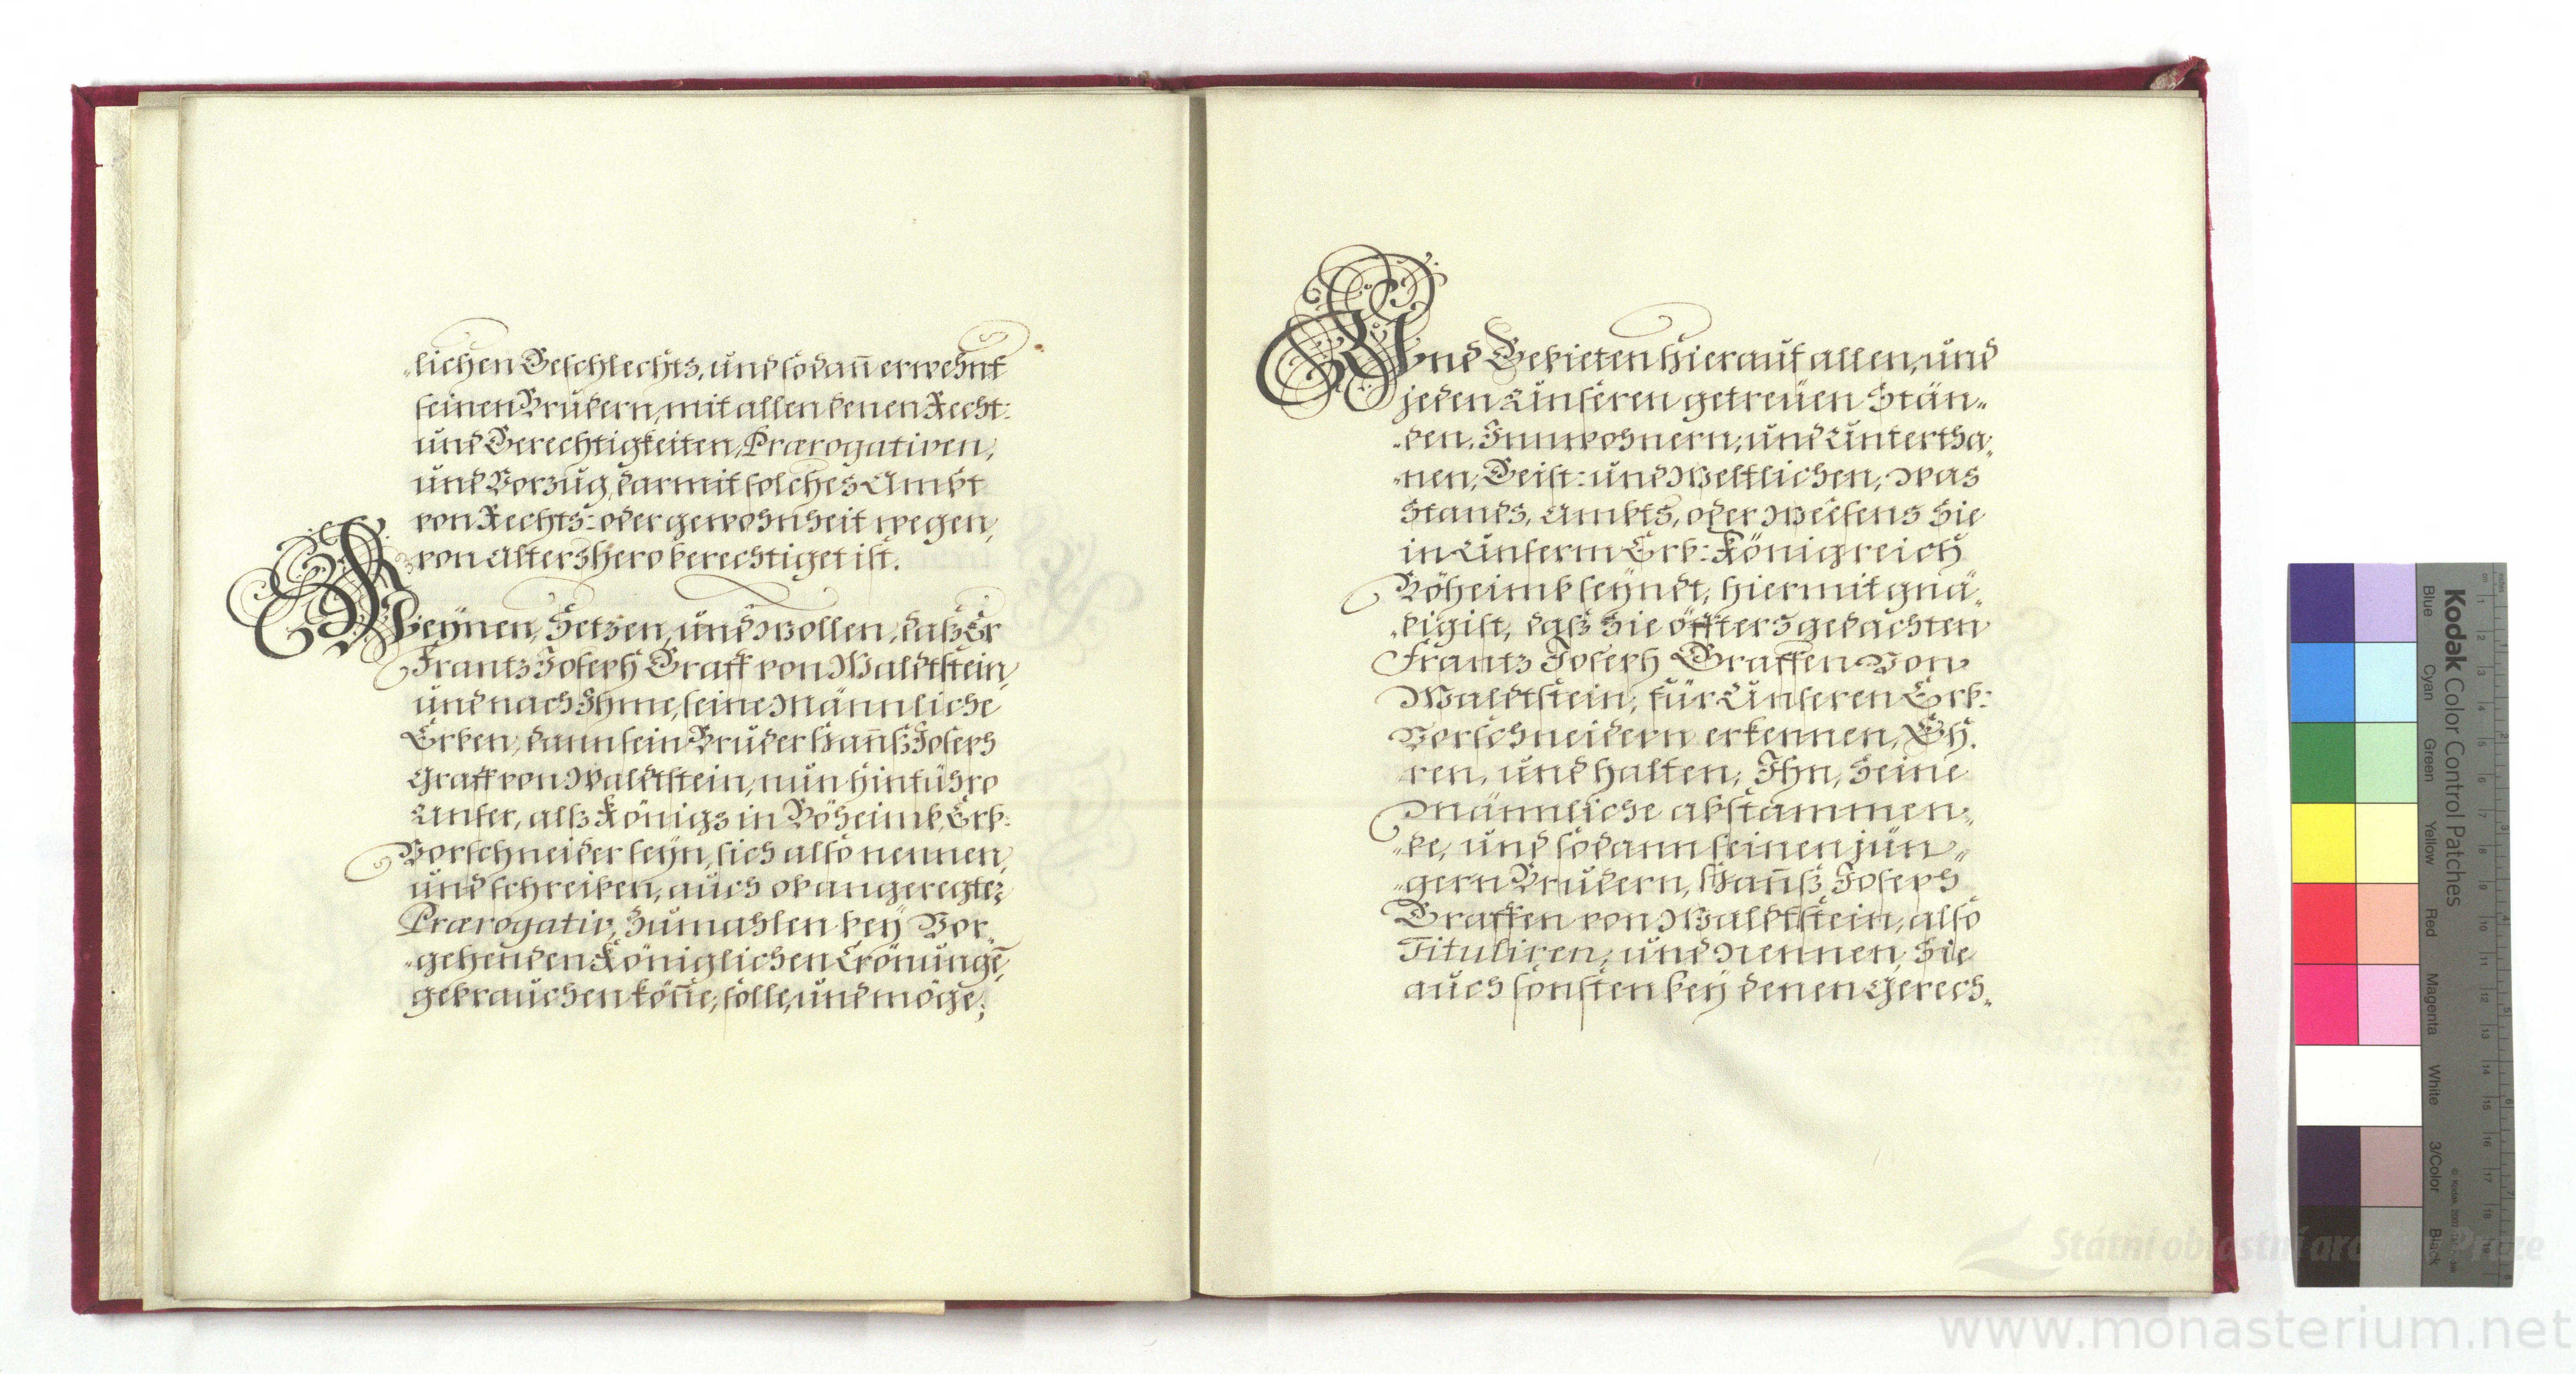 lichen Geschlechts, und sodañ erwehnt
seinen Brudern, mit allen denen Recht:
und Gerechtigkeiten, Prærogativen,
und Vorzug, darmit solches Ambt
von Rechts: oder gewohnheit wegen,
von Altershero berechtiget ist.
Meÿnen, Setzen, und Wollen, daß Er
Frantz Joseph Graff von Waldtstein,
und nach Ihme, seine Männliche
Erben, dann sein Bruder Hañß Joseph
Graff von Waldtstein, nun hinführo
Unser, alß Königs in Böheimb, Erb:
Vorschneider seÿn, sich also nennen,
und schreiben, auch obangeregter
Prærogativ, Zumahlen beÿ Vor„
„gehenden Königlichen Crönungē,
gebrauchen köñe, solle, und möge;
Und Gebieten hierauf allen, und
jeden Unseren getreüen Stän„
„den, Innwohnern, und Untertha„
„nen, Geist: und Weltlichen, was
Stands, Ambts, oder Weesens Sie
in Unserm Erb: Königreich
Böheimb seÿndt, hiermit gnä„
„digist, daß Sie öffters gedachten
Frantz Joseph Graffen von
Waldtstein, für Unseren Erb:
Vorschneidern erkennen, Eh„
ren, und halten, Ihn, Seine
Männliche abstammen„
„de, und sodann seinen jün„
„gern Brudern, Hañß Joseph
Graffen von Waldtstein, also
Tituliren, und Nennen, Sie
auch sonsten beÿ denen Gerech„
Kodak Color Control Patches
Blue Cyan Green Yellow Red Magenta White 3/Color Black
www.monasterium.net